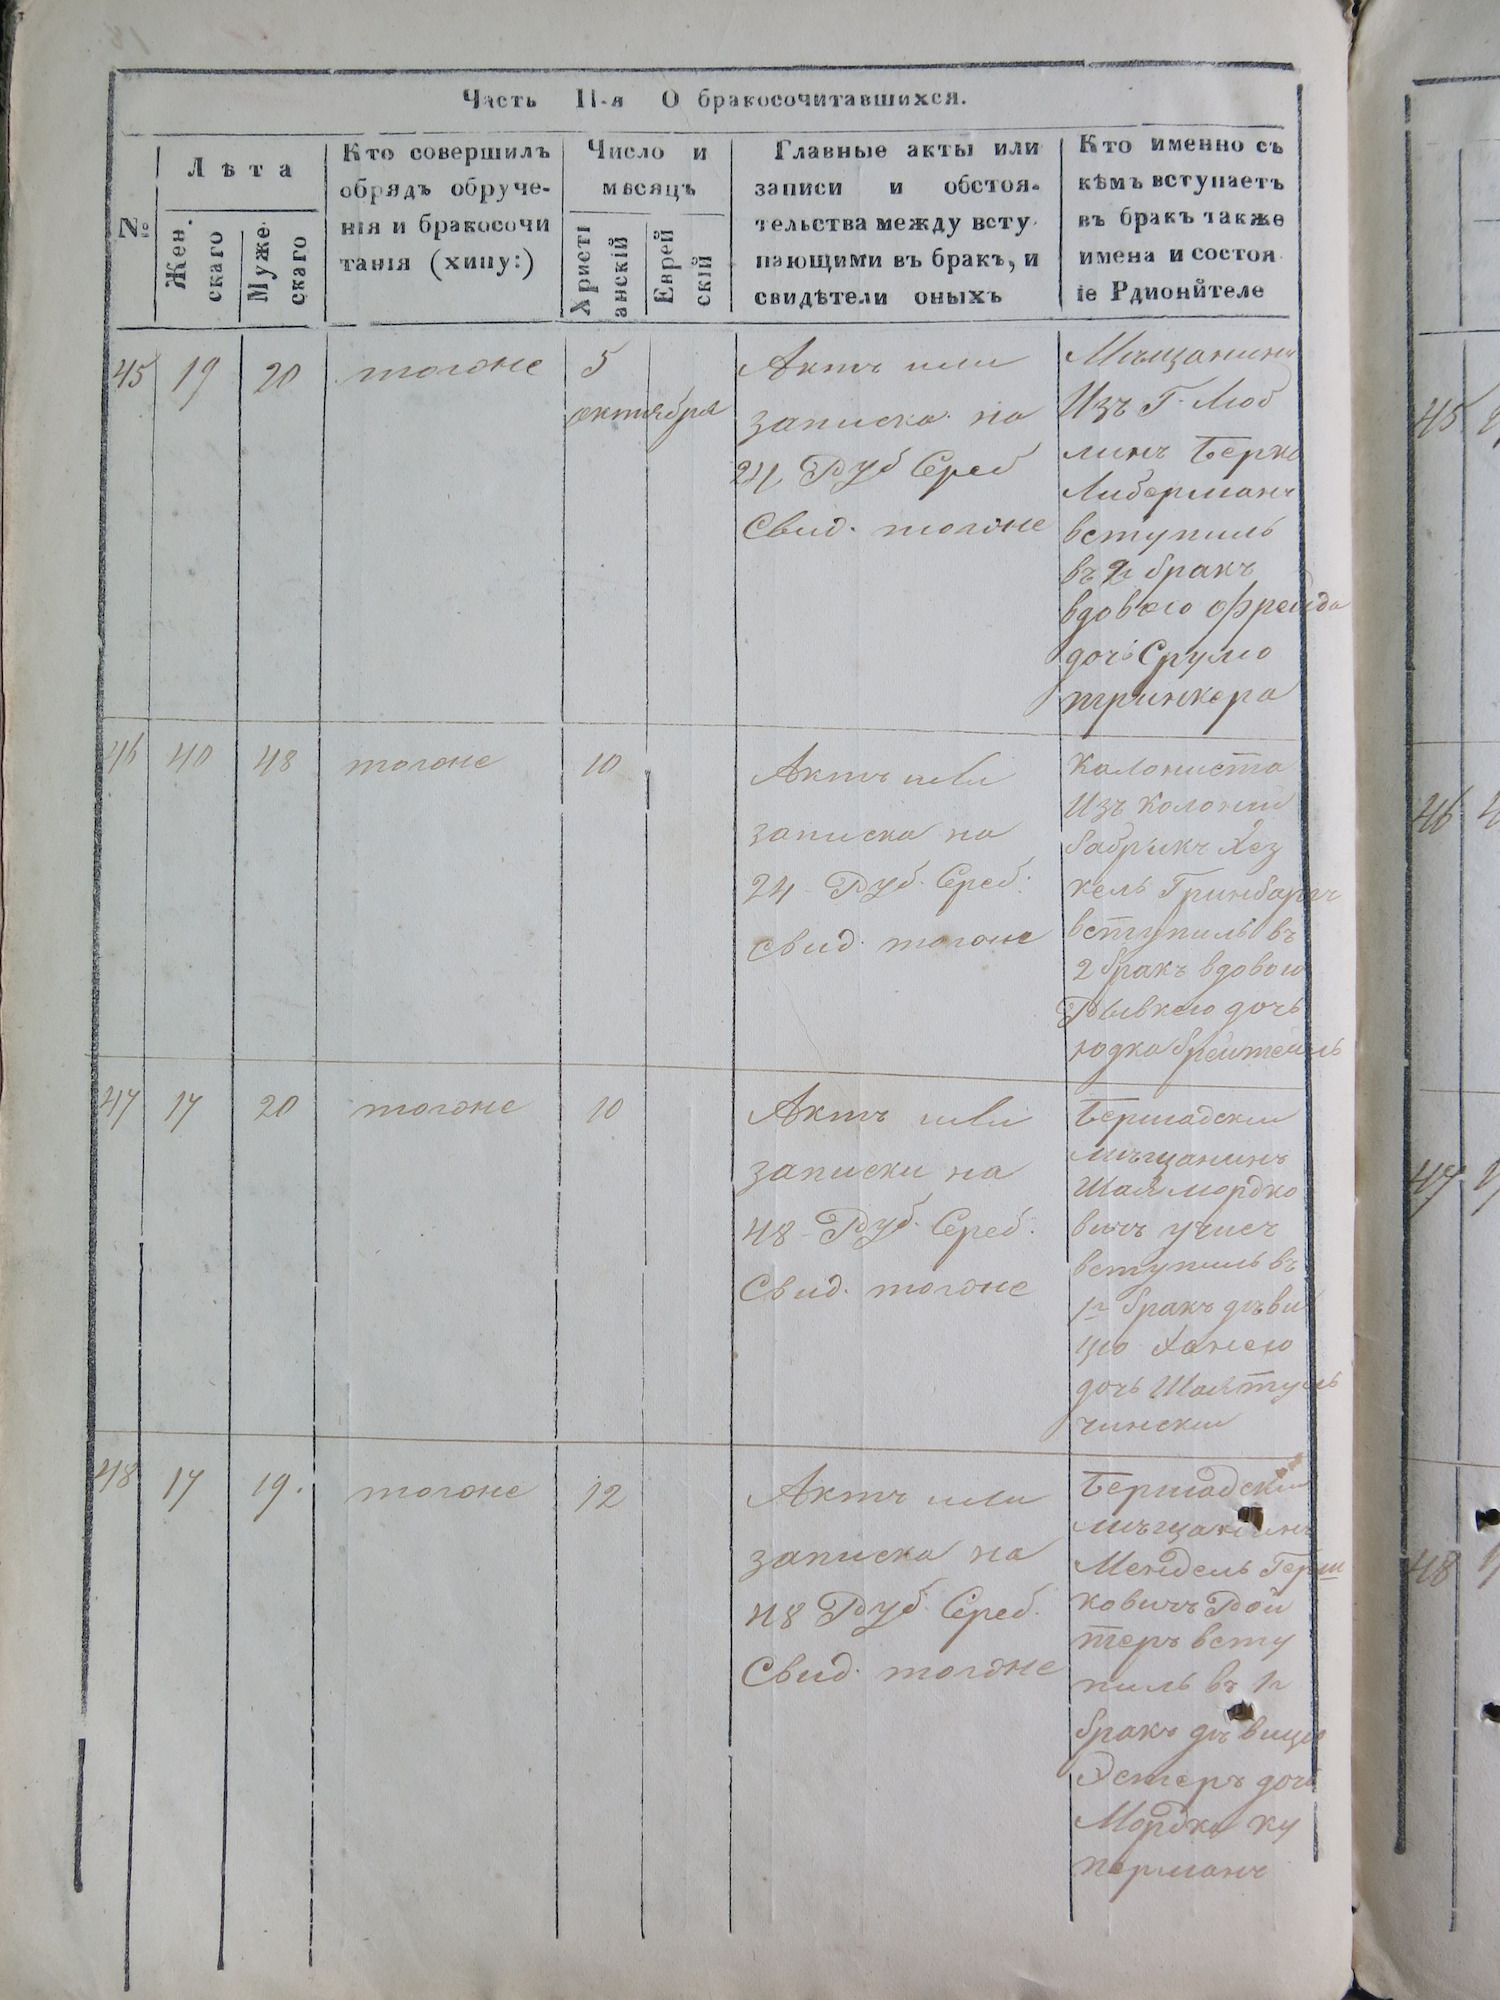 Часть II-я О бракосочитавшихся.
№
Лѣта
Жен.
скаго
Муже
скаго
Кто совершилъ
обрядъ обруче-
нія и бракосочи
танія (хипу:)
Число и
мѣсяцъ
Христі
анскій
Еврей
скій
Главные акты или
записи и обстоя-
тельства между всту
пающими въ бракъ, и
свидѣтели оныхъ
Кто именно съ
кѣмъ вступаетъ
въ бракъ также
имена и состоя
іе Рдионйтеле
45 19 20 тогоже 5
октября
Актъ или
записка на
24 Руб Среб
Свид. тогоже
Мѣщанинъ
Изъ Г. Люб
линъ Берко
Либерманъ
вступилъ
въ 2й бракъ
вдовою Фрейда
дочь Срулю
тринкера
46 40 48 тогоже 10
Актъ или
записка на
24 Руб. Среб.
свид. тогоже
Колониста
Изъ колоніи
Хез
кель Гринбаргъ
вступилъ въ
2 бракъ вдовою
Рывкею дочь
юдка
47 17 20 тогоже 10
Актъ или
записки на
48 Руб. Среб.
Свид. тогоже
Бершадскии
мѣщанинъ
Шая мордко
вичъ
вступилъ въ
1й бракъ дѣви
цю Ханею
дочь Шая туль
чинскии
48 17 19. тогоже 12
Актъ или
записка на
48 Руб. Среб.
Свид. тогоже
Бершадскии
мѣщанинъ
Мендель Герш
ковичъ Рой
теръ всту
пилъ въ 1й
бракъ дѣвицы
Эстеръ дочь
Мордка ку
перманъ
45
46
47
48